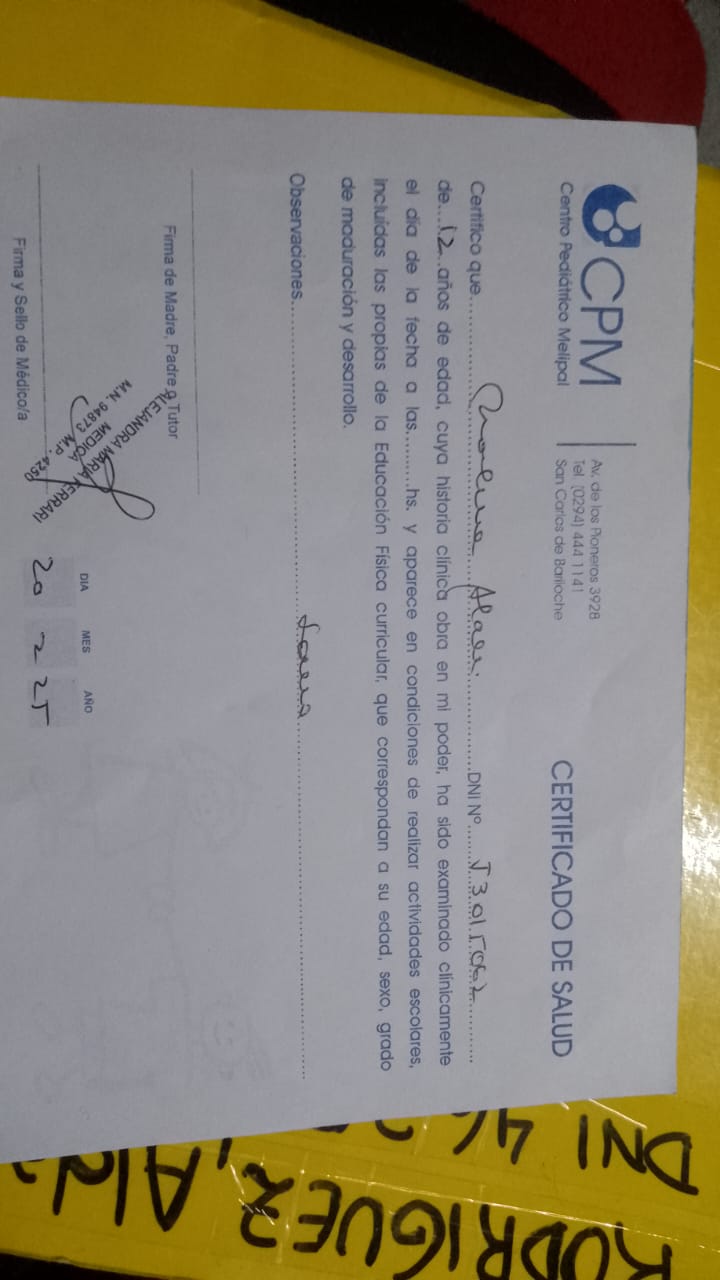 CPM
Centro Pediátrico Melipal
Av. de los Pioneros 3928
Tel. (0294) 444 1141
San Carlos de Bariloche
CERTIFICADO DE SALUD
Certifico que.......... DNI Nº.....53015062
de...12..años de edad, cuya historia clínica obra en mi poder, ha sido examinado clínicamente
el día de la fecha a las..........hs. y aparece en condiciones de realizar actividades escolares,
incluidas las propias de la Educación Física curricular, que correspondan a su edad, sexo, grado
de maduración y desarrollo.
Observaciones..........
Firma de Madre, Padre o Tutor
ALEJANDRA MARIA FERRARI
MEDICA
M.N. 94873 M.P. 4258
Firma y Sello de Médico/a
DIA MES AÑO
20 2 25
DNI 46
RODRIGUEZ, Al